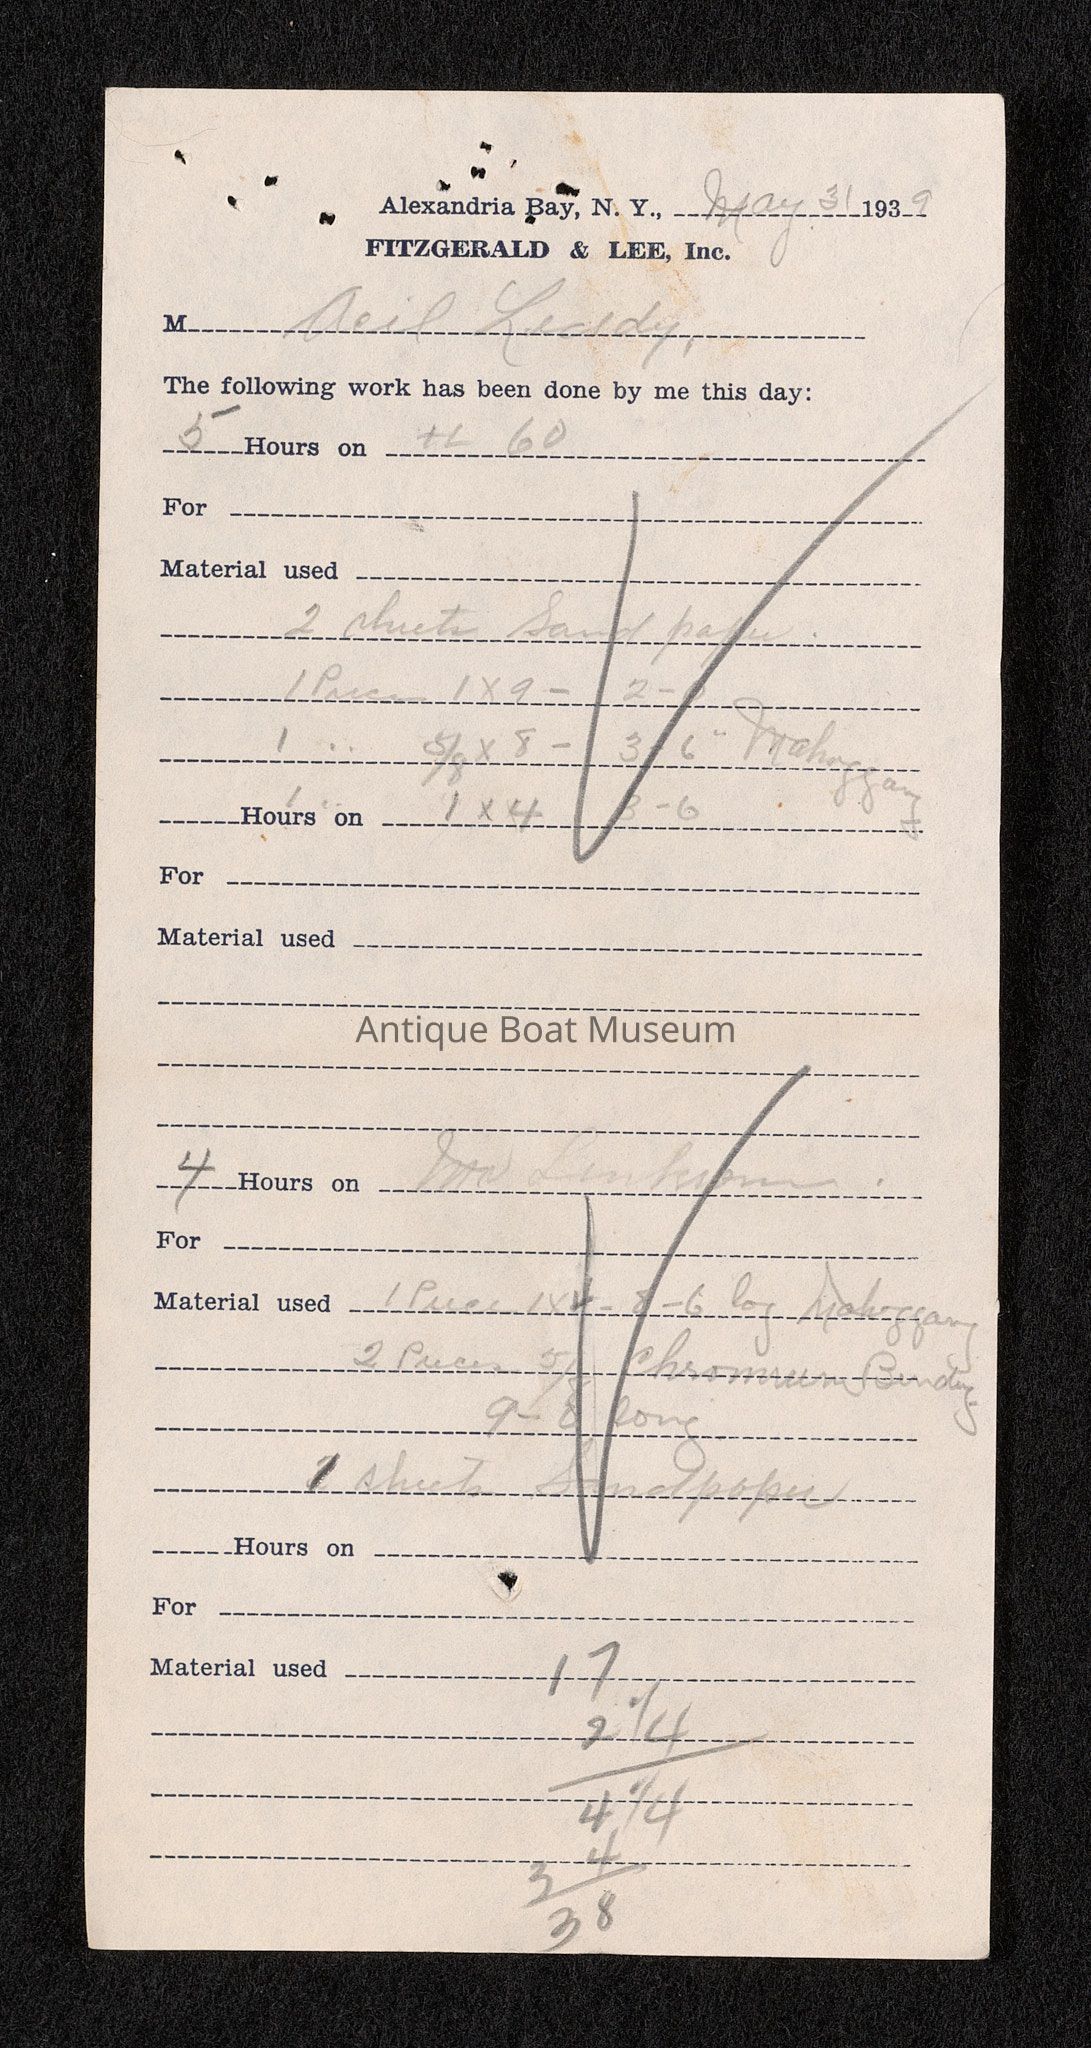 Alexandria Bay, N. Y., May 31 1939
FITZGERALD & LEE, Inc.
M Neil Leady,
The following work has been done by me this day:
5 Hours on 60
For
Material used
2 sheets Sand paper.
1 Pieces 1 X 9 - 2-
1 " 5/8 X 8 - 3-6" Mahoggany
1 " 1 X 4 3-6
Hours on
For
Material used
Antique Boat Museum
4 Hours on Mr
For
Material used 1 Pieces 1X4 - 8-6 log Mahoggany
2 Pieces 5/8 Chromium Binding
9-8 long
1 sheets Sandpaper
Hours on
For
Material used
17
2 1/4
4 1/4
4
3
38